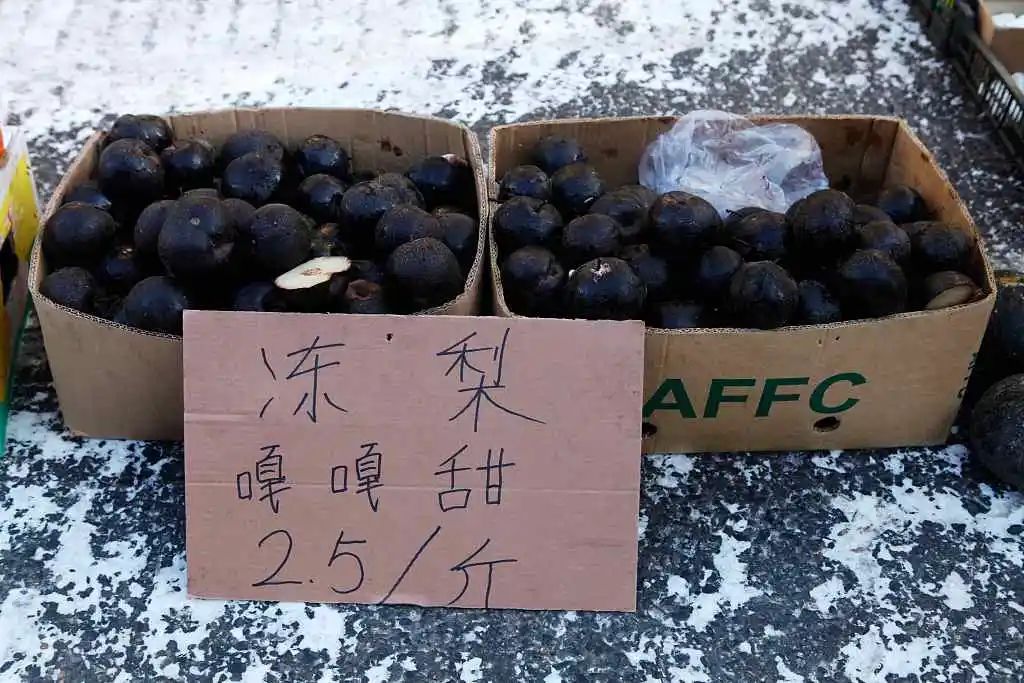 冻 梨
嘎嘎甜
2.5/斤
AFFC